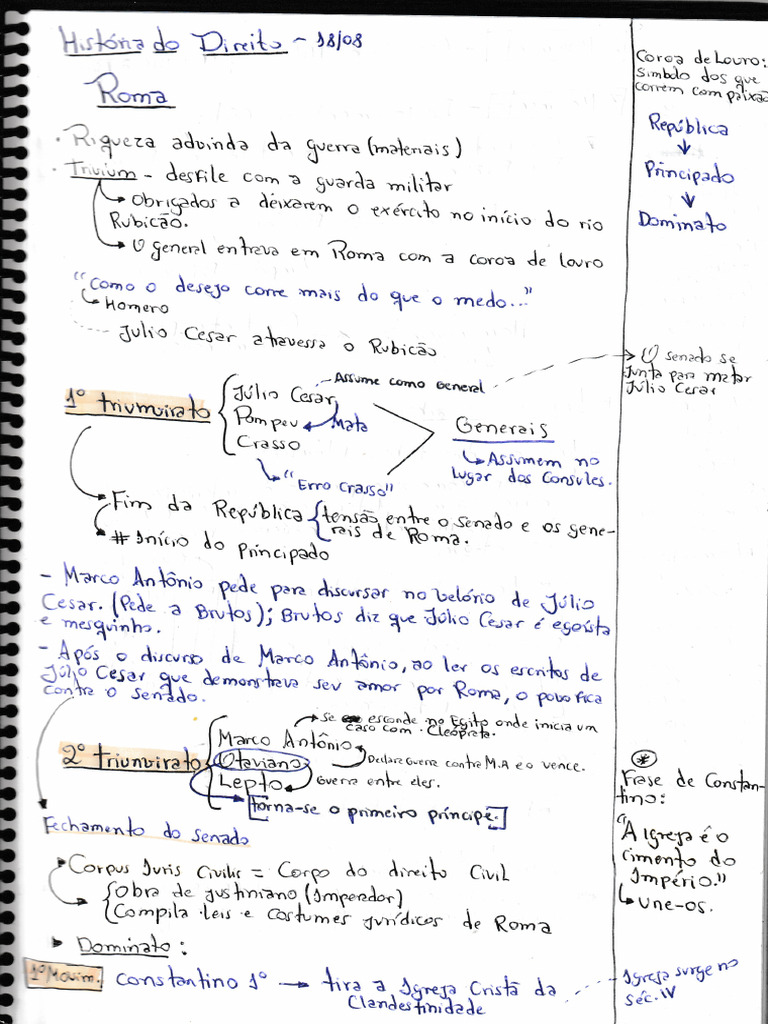 História do Direito - 18/08
Roma
• Riqueza advinda da guerra (materiais)
• Trivium - desfile com a guarda militar
Obrigados a deixarem o exército no início do rio
Rubicão.
O general entrava em Roma com a coroa de louro
"Como o desejo corre mais do que o medo..."
Homero
Julio Cesar atravessa o Rubicão
1º triunvirato
Júlio Cesar - Assume como General
Pompeu Mata
Crasso
"Erro crasso"
Generais
Assumem no
lugar dos Consules.
Fim da República {tensão entre o senado e os gene-
rais de Roma.
# Início do Principado
- Marco Antônio pede para discursar no velório de Júlio
Cesar. (Pede a Brutos); Brutos diz que Júlio Cesar é egoísta
e mesquinho.
- Após o discurso de Marco Antônio, ao ler os escritos de
Júlio Cesar que demonstrava seu amor por Roma, o povo fica
contra o senado.
2º triunvirato
Marco Antônio
se esconde no Egito onde inicia um
caso com Cleópreta.
Otaviano
Declara Guerra contra M.A e o vence.
Lepto
Guerra entre eles.
[torna-se o primeiro príncipe.]
Fechamento do senado
Corpus Juris Civilis = Corpo do direito Civil
Obra de Justiniano (Imperador)
Compila leis e costumes jurídicos de Roma
Dominato:
1º Movim. Constantino 1º → tira a Igreja Cristã da
Clandestinidade
Coroa de Louro:
Simbolo dos que
correm com paixão
República
↓
Principado
↓
Dominato
O senado se
junta para matar
Júlio Cesar
*
Frase de Constan-
tino:
"A Igreja é o
cimento do
Império."
une-os.
Igreja surge no
séc. IV